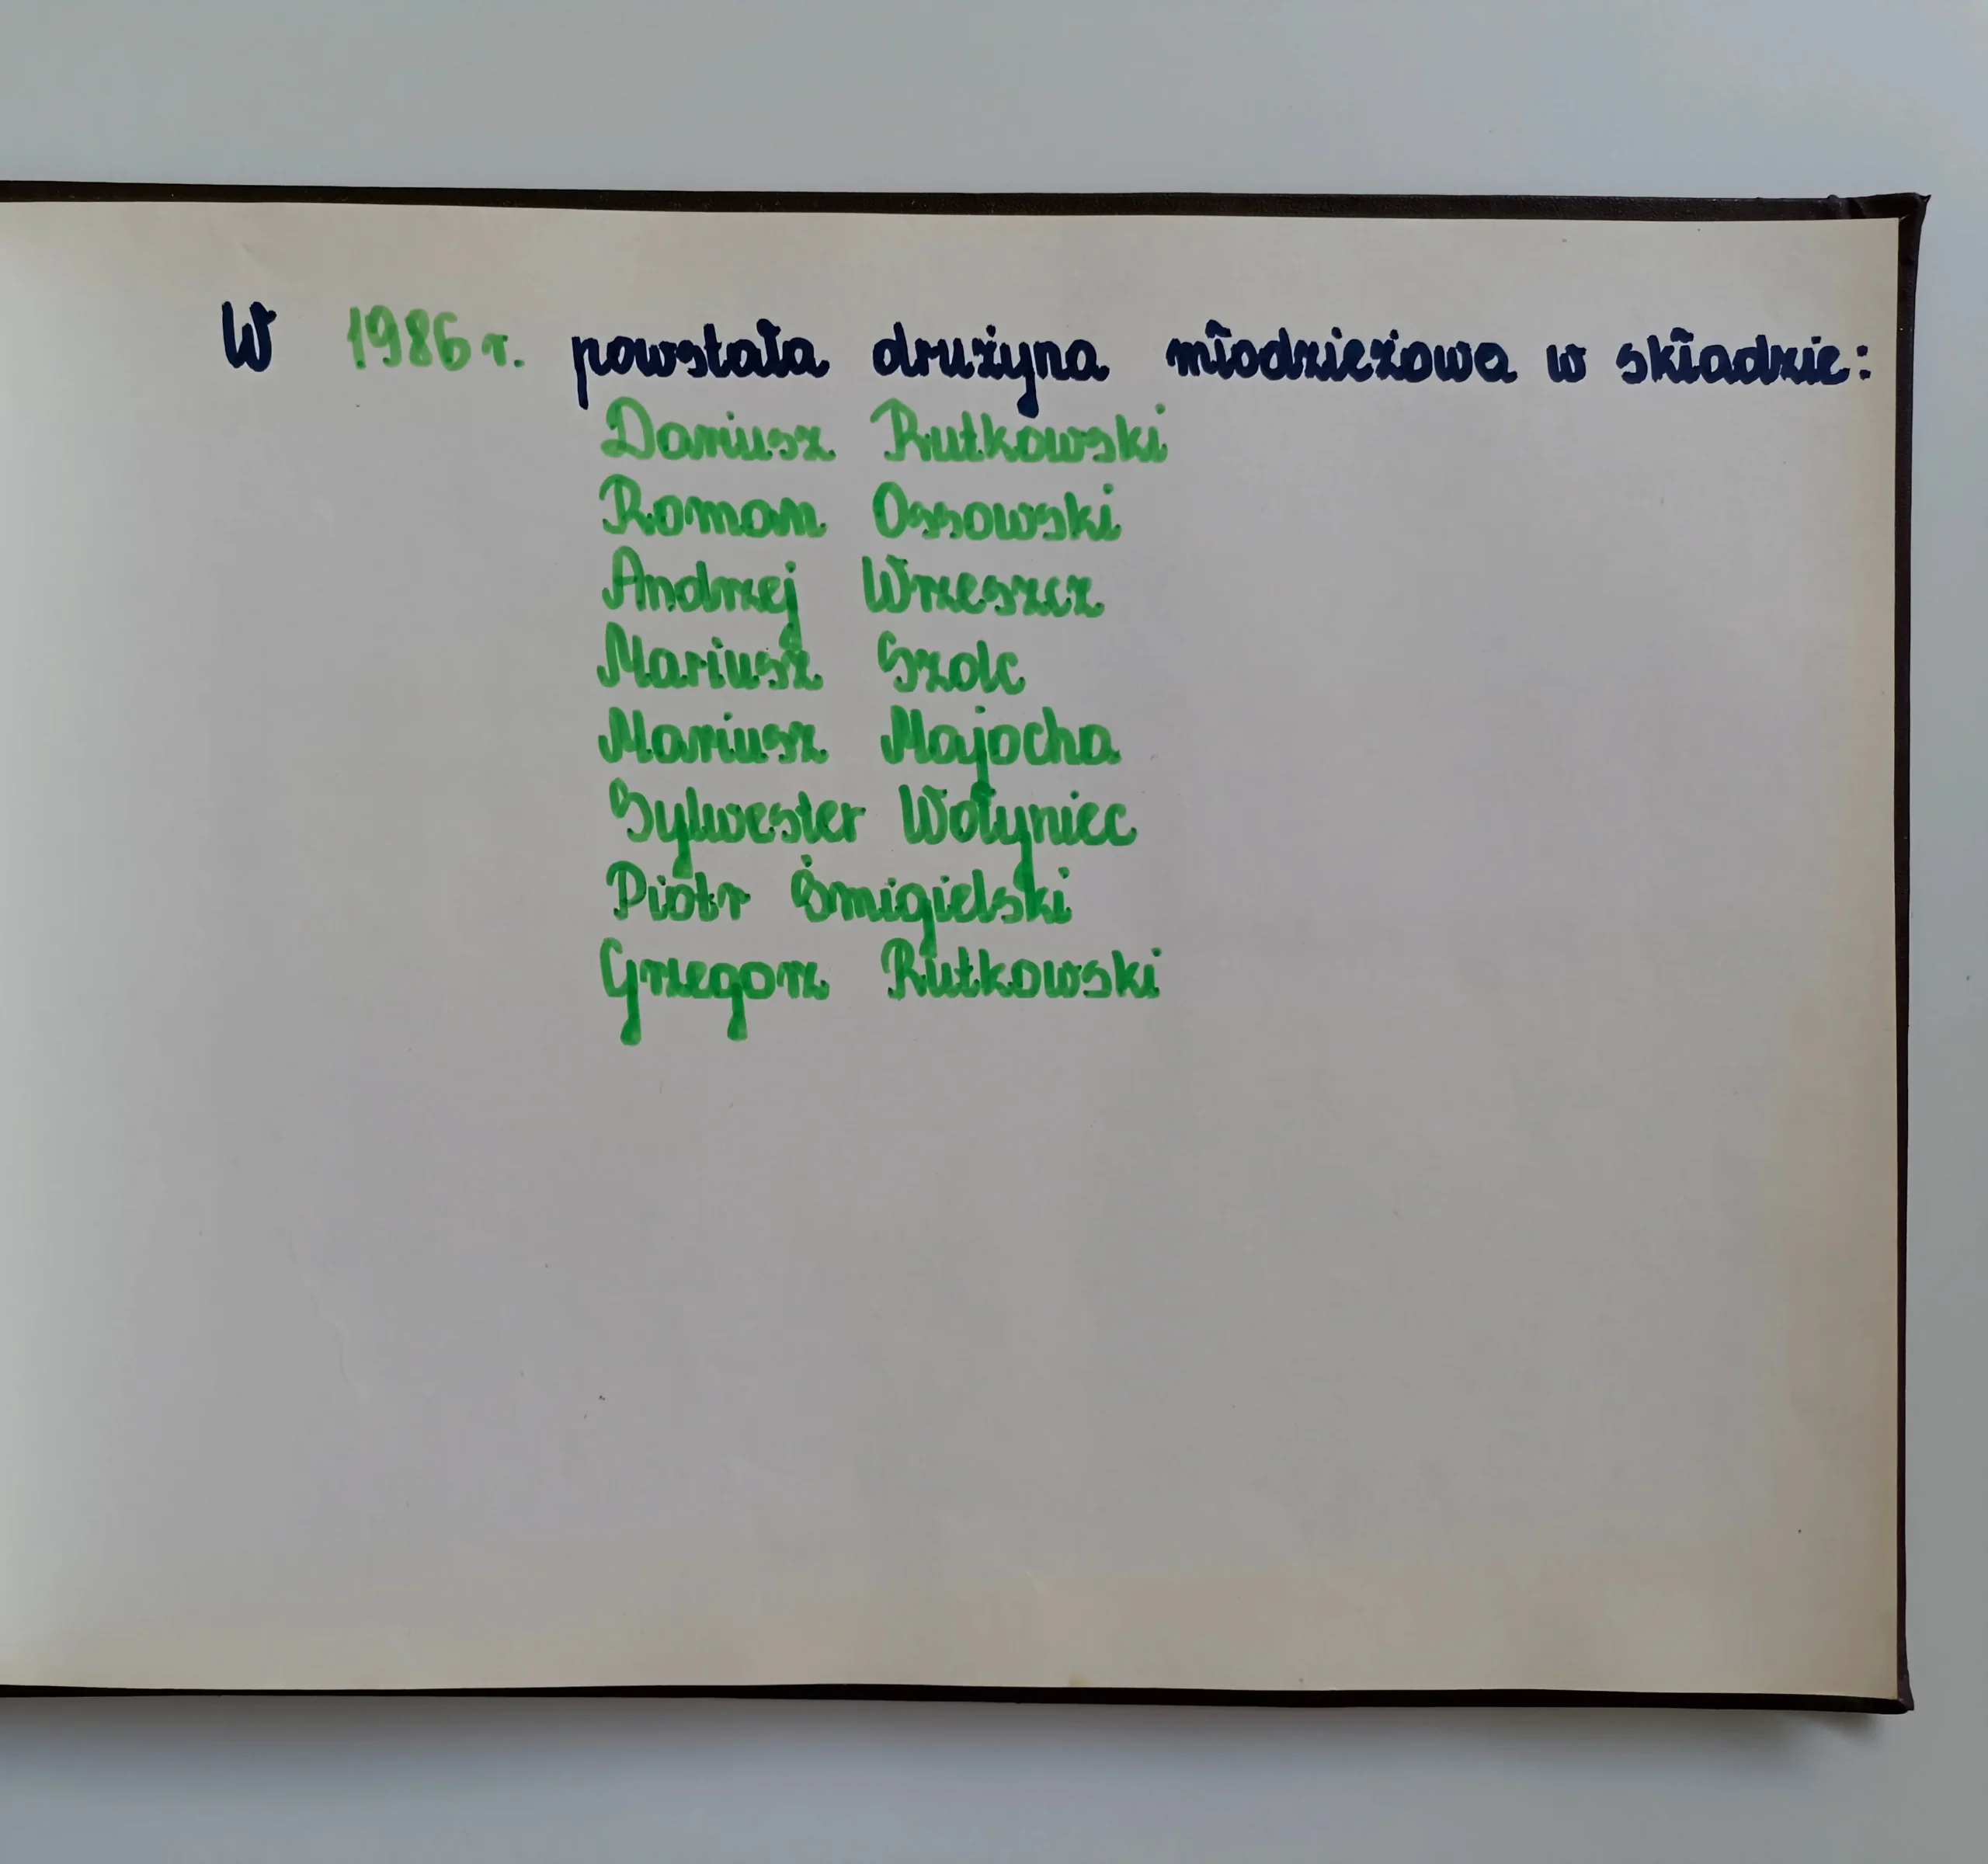 W 1986 r. powstała drużyna młodzieżowa w składzie:
Dariusz Rutkowski
Roman Ossowski
Andrzej Wrzeszcz
Mariusz Szolc
Mariusz Majocha
Sylwester Wołyniec
Piotr Śmigielski
Grzegorz Rutkowski